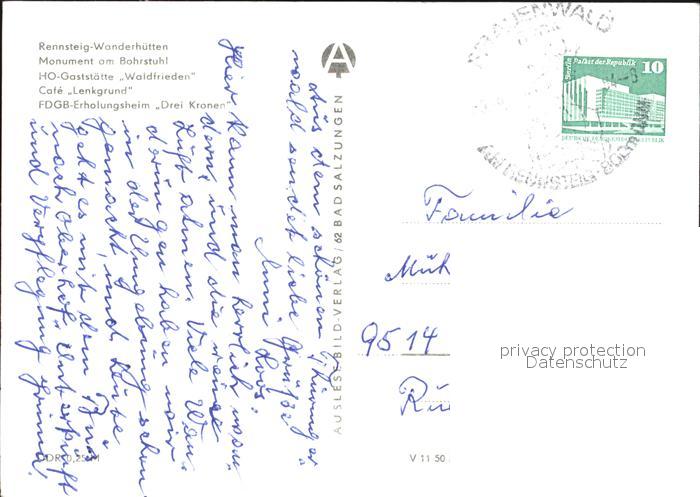 Rennsteig-Wanderhütten
Monument am Bohrstuhl
HO-Gaststätte „Waldfrieden"
Café „Lenkgrund"
FDGB-Erholungsheim „Drei Kronen"
Aus dem schönen Thüringer
wald sendet liebe Grüße
Hier kann man herrlich wan
dern und die reine
Luft atmen. Viele Wan
derungen haben wir
in der Umgebung schon
gemacht, und heute
geht es mit dem Bus
nach Oberhof. Unterkunft
und Verpflegung prima!
AUSLESE-BILD-VERLAG / 62 BAD SALZUNGEN
DDR 0,25 M
V 11 50
FRAUENWALD
AM RENNSTEIG
Berlin Palast der Republik
10
DEUTSCHE DEMOKRATISCHE REPUBLIK
Familie
Müh
9514
privacy protection
Datenschutz